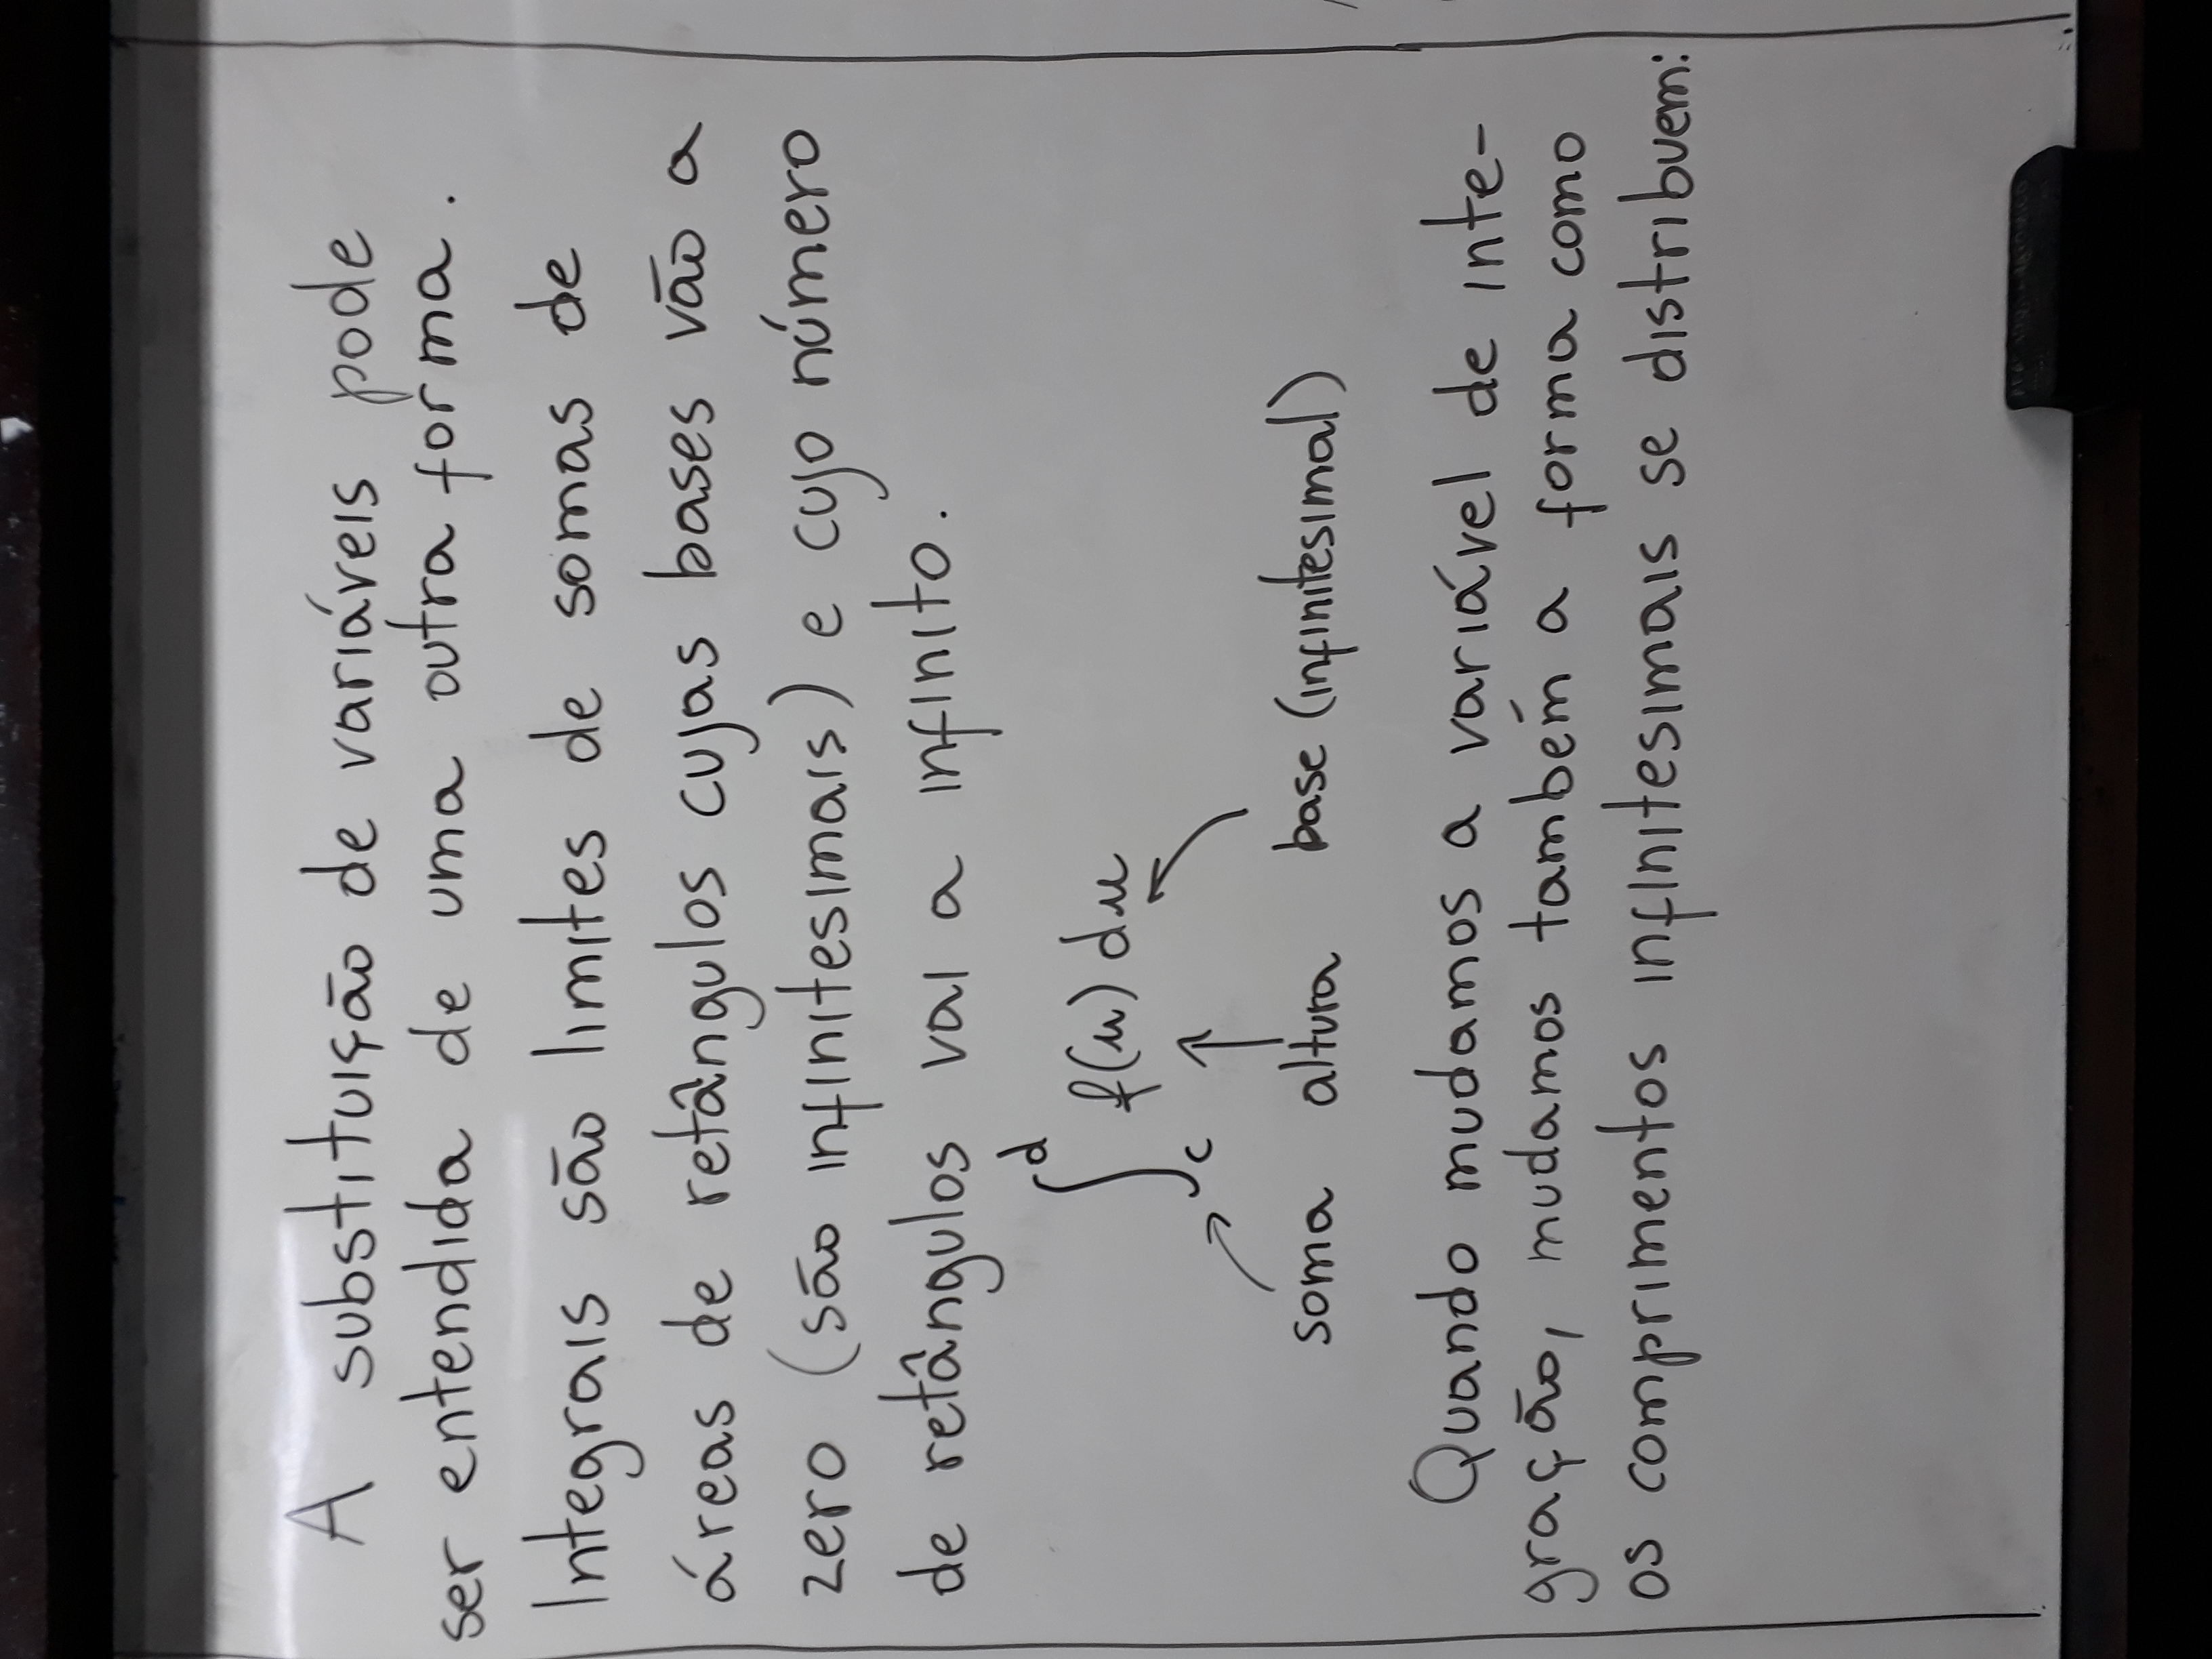 A substituição de variáveis pode
ser entendida de uma outra forma.
Integrais são limites de somas de
áreas de retângulos cujas bases vão a
zero (são infinitesimais) e cujo número
de retângulos vai a infinito.
∫_c^d f(u) du
soma altura base (infinitesimal)
Quando mudamos a variável de inte-
gração, mudamos também a forma como
os comprimentos infinitesimais se distribuem: